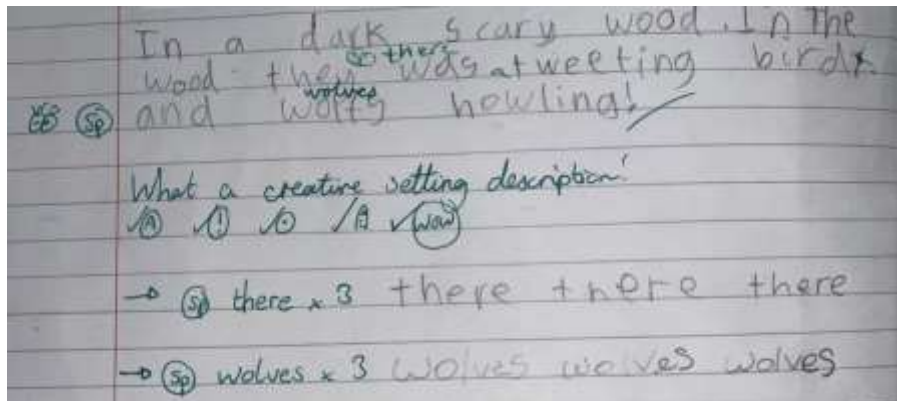 In a dark scary wood. In the
sp there
wood they was a tweeting birds
wolves
Sp and wolfs howling!
What a creative setting description!
A ! . A wow
→ Sp there x 3 there there there
→ Sp wolves x 3 wolves wolves wolves